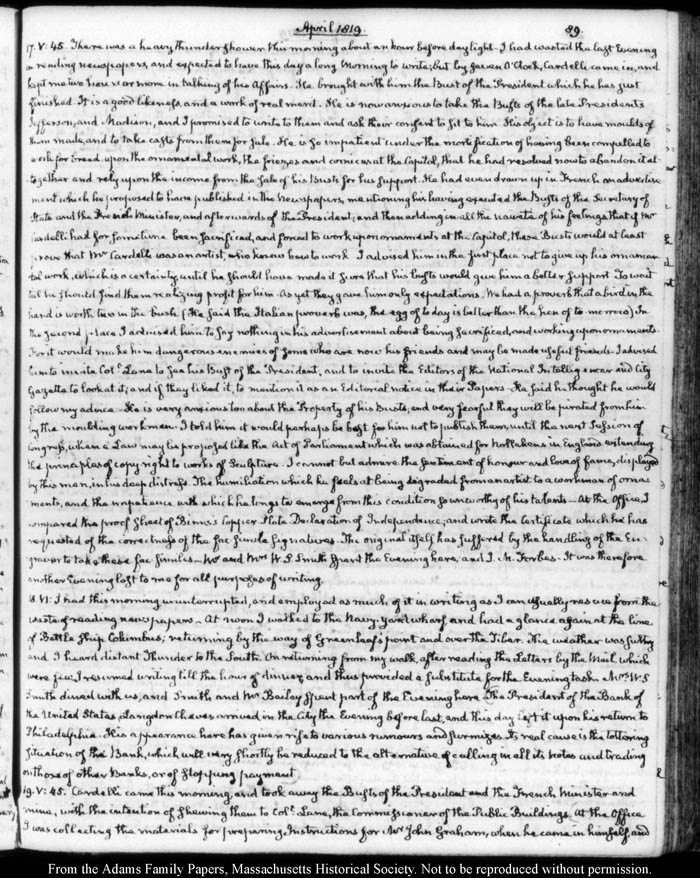 April 1819.
89.
17. V: 45. There was a heavy thunder shower this morning about an hour before daylight. I had wasted the last Evening
in reading newspapers, and expected to have this day a long Morning to write; but by seven O'Clock, Cardelli came in, and
kept me two hours or more in talking of his Affairs. He brought with him the Bust of the President which he has just
finished. It is a good likeness, and a work of real merit. He is now anxious to take the Busts of the late Presidents
Jefferson, and Madison, and I promised to write to them and ask their consent to sit to him. His object is to have moulds of
them made, and to take casts from them for sale. He is so impatient under the mortification of having been compelled to
work for bread, upon the ornamental work, the friezes and cornices at the Capitol, that he had resolved now to abandon it al-
together and rely upon the income from the sale of his Busts for his support. He had even drawn up in French an advertise
ment which he proposed to have published in the Newspapers, mentioning his having executed the Busts of the Secretary of
State and the French Minister, and afterwards of the President; and then adding in all the naiveté of his feelings that if Mr
Cardelli had for some time been sacrificed, and forced to work upon ornaments at the Capitol, these Busts would at least
prove that Mr Cardelli was an artist, who knows how to work. I advised him in the first place not to give up his ornamen
tal work, which is a certainty, until he should have made it sure that his busts would give him a better support. To wait
till he should find them realizing profit for him. As yet they gave him only expectations. We had a proverb that a bird in the
hand is worth two in the bush (He said the Italian proverb was, the egg of to day is better than the hen of to-morrow) In
the second place I advised him to say nothing in his advertisement about being sacrificed, and working upon ornaments.
For it would make him dangerous enemies of some who are now his friends and may be made useful friends. I advised
him to invite Coll. Lane to see his Bust of the President, and to invite the Editors of the National Intelligencer and City
Gazette to look at it; and if they liked it, to mention it as an Editorial notice in their Papers. He said he thought he would
follow my advice. He is very anxious too about the Property of his busts, and very fearful they will be pirated from him
by the moulding workmen. I told him it would perhaps be best for him not to publish them, until the next Session of
Congress, when a Law may be proposed like the Act of Parliament which was obtained for Nollekens in England extending
the principles of copy-right to works of Sculpture. I cannot but admire the sentiment of honour and love of fame, displayed
by this man, in his deep distress. The humiliation which he feels at being degraded from an artist to a workman of orna-
ments, and the impatience with which he longs to emerge from this condition so unworthy of his talents — At the Office, I
compared the proof sheet of Binns's Copper Plate Declaration of Independence; and wrote the Certificate which he has
requested of the correctness of the fac simile signatures. The original itself has suffered by the handling of the En-
graver to take these fac similes — Mr and Mrs W. S. Smith spent the Evening here, and J. M. Forbes. It was therefore
another Evening lost to me for all purposes of writing.
18. VI: I had this morning uninterrupted, and employed as much of it in writing as I can usually rescue from the
waste of reading newspapers. At noon I walked to the Navy-Yard wharf, and had a glance again at the Line
of Battle Ship Columbus; returning by the way of Greenleaf's point and over the Tiber. The weather was sultry
and I heard distant Thunder to the South. On returning from my walk, after reading the Letters by the Mail which
were few, I resumed writing till the hour of dinner, and thus provided a substitute for the Evening task. Mrs W. S.
Smith dined with us, and Smith and Mr Bailey spent part of the Evening here. The President of the Bank of
the United States, Langdon Cheves arrived in the City the Evening before last, and this day left it upon his return to
Philadelphia. His appearance here has given rise to various rumours and surmizes. Its real cause is the tottering
situation of the Bank, which will very shortly be reduced to the alternative of calling in all its Notes and trading
on those of other Banks, or of stopping payment.
19. V: 45. Cardelli came this morning, and took away the Busts of the President and the French Minister and
mine, with the intention of shewing them to Coll. Lane, the Commissioner of the Public Buildings. At the Office
I was collecting the materials for preparing Instructions for Mr John Graham, when he came in himself, and
From the Adams Family Papers, Massachusetts Historical Society. Not to be reproduced without permission.